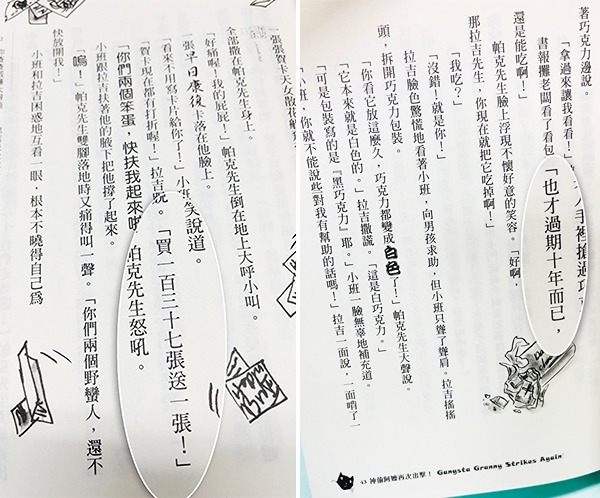 一張張賀卡天女散花
全部撒在帕克先生身上。
「好痛喔！我的屁屁！」帕克先生倒在地上大呼小叫。
一張早日康復卡落在他臉上。
「看來不用寫卡片給你了！」小班笑說道。
「賀卡現在都有打折喔！」拉吉說。「買一百三十七張送一張！」
「你們兩個笨蛋，快扶我起來 帕克先生怒吼。
小班跟拉吉扶著他的腋下把他撐了起來。
「嗚！」帕克先生雙腳落地時又痛得叫一聲。「你們兩個野蠻人，還不
快放開我！」
小班和拉吉困惑地互看一眼，根本不曉得自己為
著巧克力邊說。
「拿過來讓我看看！」 人手裡搶過巧
書報攤老闆看了看包 「也才過期十年而已，
還是能吃啊！」
帕克先生臉上浮現不懷好意的笑容。「好啊，
那拉吉先生，你現在就把它吃掉啊！」
「我吃？」
「沒錯！就是你！」
拉吉臉色驚慌地看著小班，向男孩求助，但小班只聳了聳肩。拉吉搖搖
頭，拆開巧克力包裝。
「你看它放這麼久，巧克力都變成白色了！」帕克先生大聲說。
「它本來就是白色的。」拉吉撒謊。「這是白巧克力。」
「可是包裝寫的是『黑巧克力』耶。」小班一臉無辜地補充道。
小班，你就不能說些對我有幫助的話嗎！」拉吉一面說，一面啃了一
43 神偷阿嬤再次出擊！ Gangsta Granny Strikes Again!